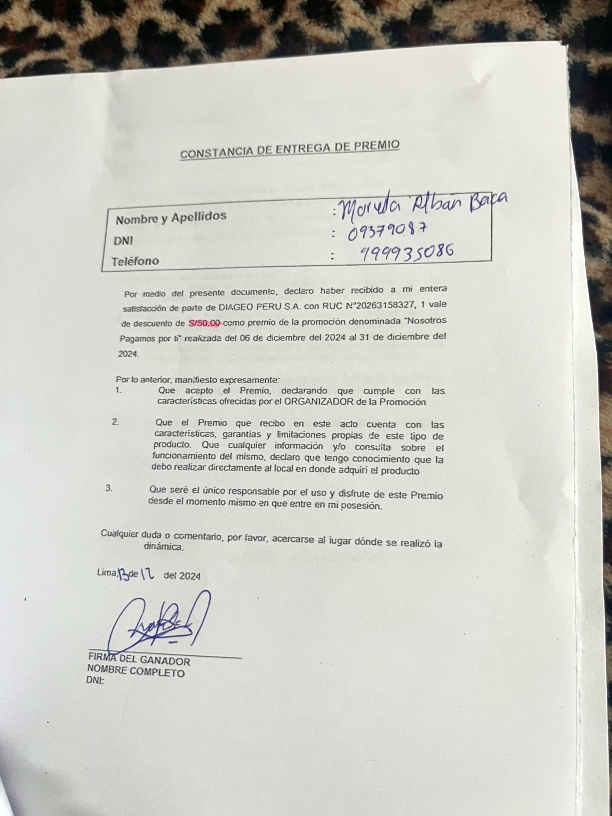 CONSTANCIA DE ENTREGA DE PREMIO
Nombre y Apellidos : Mariela Albán Baca
DNI : 09379087
Teléfono : 999935086
Por medio del presente documento, declaro haber recibido a mi entera
satisfacción de parte de DIAGEO PERU S.A. con RUC N°20263158327, 1 vale
de descuento de S/50.00 como premio de la promoción denominada "Nosotros
Pagamos por ti" realizada del 06 de diciembre del 2024 al 31 de diciembre del
2024.
Por lo anterior, manifiesto expresamente:
1. Que acepto el Premio, declarando que cumple con las
características ofrecidas por el ORGANIZADOR de la Promoción
2. Que el Premio que recibo en este acto cuenta con las
características, garantías y limitaciones propias de este tipo de
producto. Que cualquier información y/o consulta sobre el
funcionamiento del mismo, declaro que tengo conocimiento que la
debo realizar directamente al local en donde adquirí el producto
3. Que seré el único responsable por el uso y disfrute de este Premio
desde el momento mismo en que entre en mi posesión.
Cualquier duda o comentario, por favor, acercarse al lugar dónde se realizó la
dinámica.
Lima, 13 de 12 del 2024
FIRMA DEL GANADOR
NOMBRE COMPLETO
DNI: